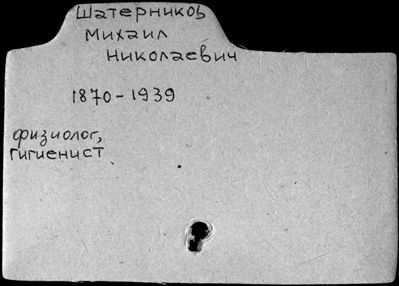 Шатерников
Михаил
Николаевич
1870-1939
физиолог,
гигиенист